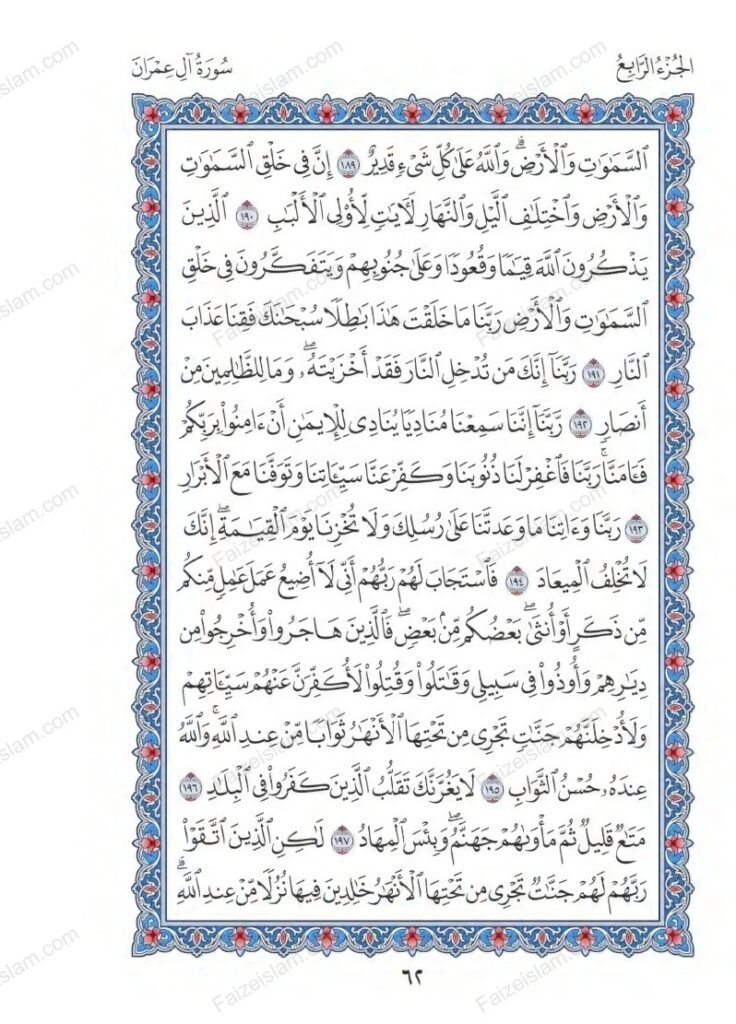 الجُزْءُ الرَّابِعُ
سُورَةُ آلِ عِمْرَانَ
ٱلسَّمَٰوَٰتِ وَٱلْأَرْضِۗ وَٱللَّهُ عَلَىٰ كُلِّ شَىْءٍ قَدِيرٌ ١٨٩ إِنَّ فِى خَلْقِ ٱلسَّمَٰوَٰتِ
وَٱلْأَرْضِ وَٱخْتِلَٰفِ ٱلَّيْلِ وَٱلنَّهَارِ لَءَايَٰتٍ لِّأُو۟لِى ٱلْأَلْبَٰبِ ١٩٠ ٱلَّذِينَ
يَذْكُرُونَ ٱللَّهَ قِيَٰمًا وَقُعُودًا وَعَلَىٰ جُنُوبِهِمْ وَيَتَفَكَّرُونَ فِى خَلْقِ
ٱلسَّمَٰوَٰتِ وَٱلْأَرْضِ رَبَّنَا مَا خَلَقْتَ هَٰذَا بَٰطِلًا سُبْحَٰنَكَ فَقِنَا عَذَابَ
ٱلنَّارِ ١٩١ رَبَّنَآ إِنَّكَ مَن تُدْخِلِ ٱلنَّارَ فَقَدْ أَخْزَيْتَهُۥۖ وَمَا لِلظَّٰلِمِينَ مِنْ
أَنصَارٍ ١٩٢ رَّبَّنَآ إِنَّنَا سَمِعْنَا مُنَادِيًا يُنَادِى لِلْإِيمَٰنِ أَنْ ءَامِنُوا۟ بِرَبِّكُمْ
فَـَٔامَنَّاۚ رَبَّنَا فَٱغْفِرْ لَنَا ذُنُوبَنَا وَكَفِّرْ عَنَّا سَيِّـَٔاتِنَا وَتَوَفَّنَا مَعَ ٱلْأَبْرَارِ
١٩٣ رَبَّنَا وَءَاتِنَا مَا وَعَدتَّنَا عَلَىٰ رُسُلِكَ وَلَا تُخْزِنَا يَوْمَ ٱلْقِيَٰمَةِۖ إِنَّكَ
لَا تُخْلِفُ ٱلْمِيعَادَ ١٩٤ فَٱسْتَجَابَ لَهُمْ رَبُّهُمْ أَنِّى لَآ أُضِيعُ عَمَلَ عَٰمِلٍ مِّنكُم
مِّن ذَكَرٍ أَوْ أُنثَىٰۖ بَعْضُكُم مِّنۢ بَعْضٍۖ فَٱلَّذِينَ هَاجَرُوا۟ وَأُخْرِجُوا۟ مِن
دِيَٰرِهِمْ وَأُوذُوا۟ فِى سَبِيلِى وَقَٰتَلُوا۟ وَقُتِلُوا۟ لَأُكَفِّرَنَّ عَنْهُمْ سَيِّـَٔاتِهِمْ
وَلَأُدْخِلَنَّهُمْ جَنَّٰتٍ تَجْرِى مِن تَحْتِهَا ٱلْأَنْهَٰرُ ثَوَابًا مِّنْ عِندِ ٱللَّهِۚ وَٱللَّهُ
عِندَهُۥ حُسْنُ ٱلثَّوَابِ ١٩٥ لَا يَغُرَّنَّكَ تَقَلُّبُ ٱلَّذِينَ كَفَرُوا۟ فِى ٱلْبِلَٰدِ ١٩٦
مَتَٰعٌ قَلِيلٌ ثُمَّ مَأْوَىٰهُمْ جَهَنَّمُۖ وَبِئْسَ ٱلْمِهَادُ ١٩٧ لَٰكِنِ ٱلَّذِينَ ٱتَّقَوْا۟
رَبَّهُمْ لَهُمْ جَنَّٰتٌ تَجْرِى مِن تَحْتِهَا ٱلْأَنْهَٰرُ خَٰلِدِينَ فِيهَا نُزُلًا مِّنْ عِندِ ٱللَّهِۗ
٦٢
Faizeislam.com